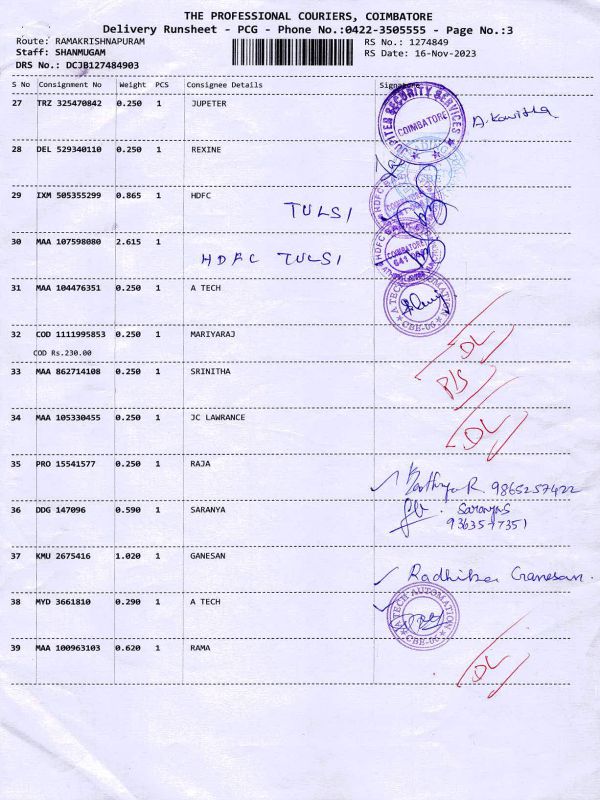 THE PROFESSIONAL COURIERS, COIMBATORE
Delivery Runsheet - PCG - Phone No.:0422-3505555 - Page No.:3
Route: RAMAKRISHNAPURAM RS No.: 1274849
Staff: SHANMUGAM RS Date: 16-Nov-2023
DRS No.: DCJB127484903
S No Consignment No Weight PCS Consignee Details Signature
27 TRZ 325470842 0.250 1 JUPETER JUPITER SECURITY SERVICES COIMBATORE A. Kavitha
28 DEL 529340110 0.250 1 REXINE
29 IXM 505355299 0.865 1 HDFC TULSI
30 MAA 107598080 2.615 1 HDFC TULSI COIMBATORE
31 MAA 104476351 0.250 1 A TECH A TECH AUTOMATION CBE-06
32 COD 1111995853 0.250 1 MARIYARAJ DL
COD Rs.230.00
33 MAA 862714108 0.250 1 SRINITHA P/S
34 MAA 105330455 0.250 1 JC LAWRANCE DL
35 PRO 15541577 0.250 1 RAJA R. 9865257422
36 DDG 147096 0.590 1 SARANYA Saranya
37 KMU 2675416 1.020 1 GANESAN Radhika Ganesan.
38 MYD 3661810 0.290 1 A TECH A TECH AUTOMATION CBE-06
39 MAA 100963103 0.620 1 RAMA DL